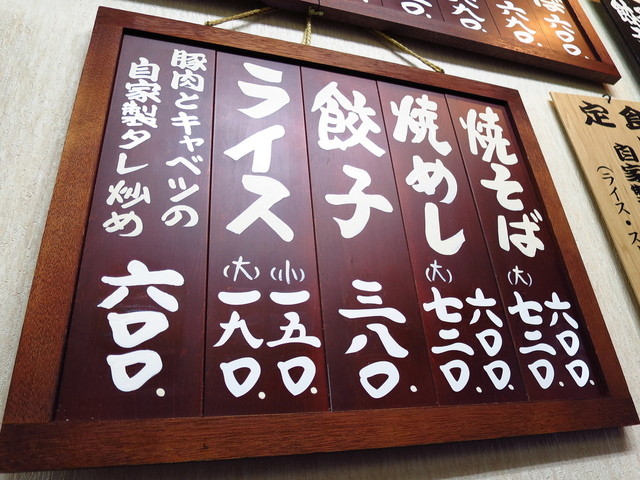 焼そば
六〇〇.
(大)七二〇.
焼めし
六〇〇.
(大)七二〇.
餃子
三八〇.
ライス
(小)一五〇.
(大)一九〇.
豚肉とキャベツの
自家製タレ炒め
六〇〇.
定食
自家
(ライス・ス